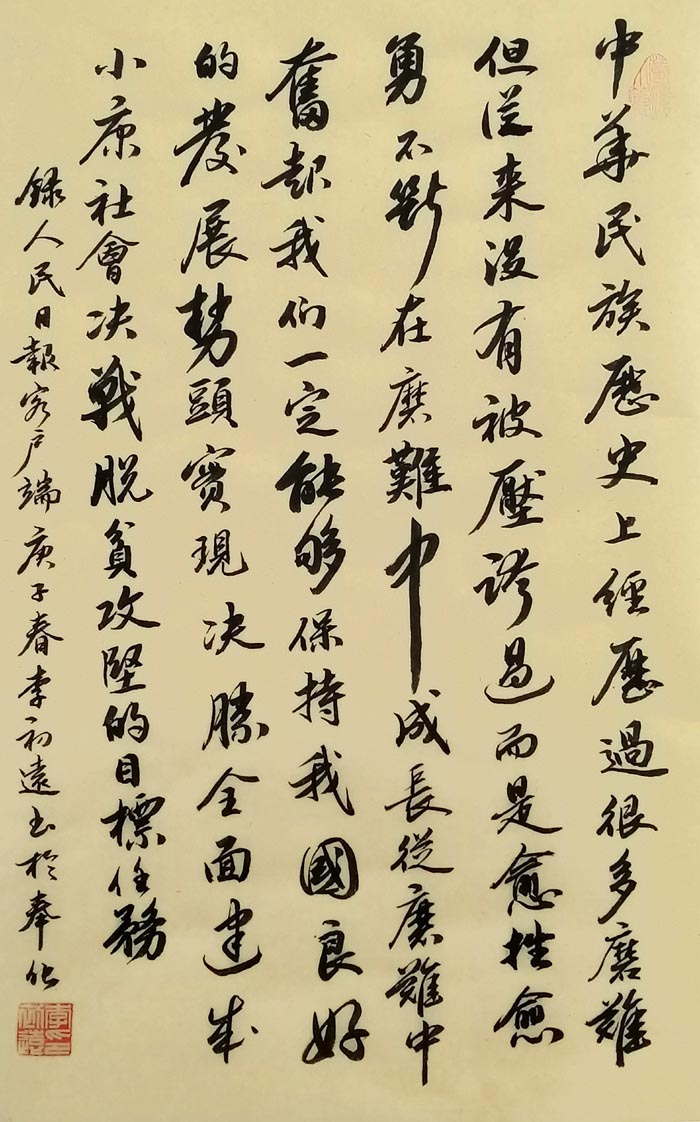 中華民族歷史上經歷過很多磨難
但從来没有被壓誇過而是愈挫愈
勇不斷在磨難中成長從磨難中
奮起我们一定能够保持我國良好
的發展勢頭實現决勝全面建成
小康社會决戰脱貧攻堅的目標任務
録人民日報客户端庚子春李初遠书於奉化